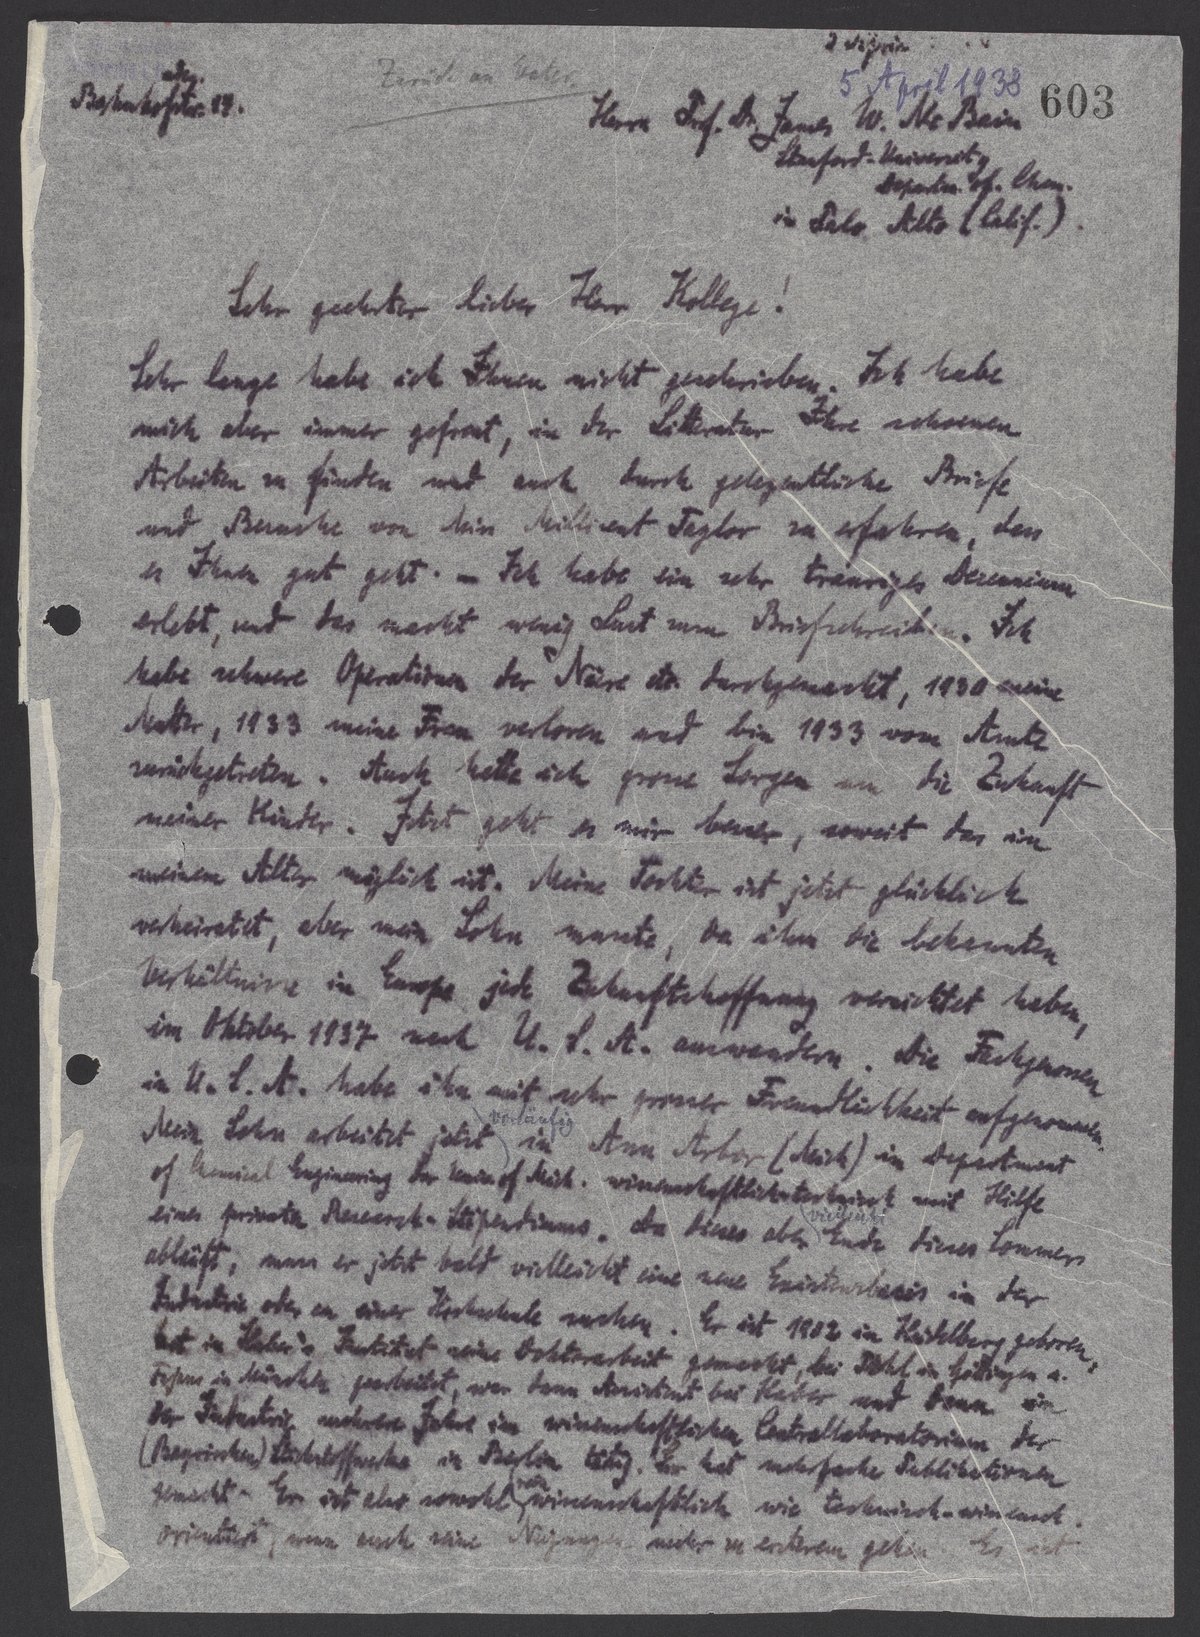 5 April 1938
603
Zurück an Vater.
Bahnhofstr. 17.
Herrn Prof. Dr. James W. Mc Bain
Stanford-University
Departm. of. Chem.
in Palo Alto (Calif.).
Sehr geehrter lieber Herr Kollege!
Sehr lange habe ich Ihnen nicht geschrieben. Ich habe
mich aber immer gefreut, in der Litteratur Ihre schoenen
Arbeiten zu finden und auch durch gelegentliche Briefe
und Besuche von Miss Millicent Taylor zu erfahren, dass
es Ihnen gut geht. – Ich habe ein sehr trauriges Decennium
erlebt, und das macht wenig Lust zum Briefschreiben. Ich
habe schwere Operationen der Niere etc. durchgemacht, 1930 meine
Mutter, 1933 meine Frau verloren und bin 1933 vom Amte
zurückgetreten. Auch hatte ich grosse Sorgen um die Zukunft
meiner Kinder. Jetzt geht es mir besser, soweit das in
meinem Alter möglich ist. Meine Tochter ist jetzt glücklich
verheiratet, aber mein Sohn musste, da ihm die bekannten
Verhältnisse in Europa jede Zukunftshoffnung vernichtet haben,
im Oktober 1937 nach U.S.A. auswandern. Die Fachgenossen
in U.S.A. habe ihn mit sehr grosser Freundlichkeit aufgenommen.
vorläufig
Mein Sohn arbeitet jetzt in Ann Arbor (Mich) im Department
of Chemical Engineering der Univ. of Mich. wissenschaftlich-technisch mit Hilfe
eines privaten Research-Stipendiums. Da dieses aber Ende dieses Sommers
abläuft, muss er jetzt bald vielleicht eine neue Existenzbasis in der
Industrie oder an einer Hochschule suchen. Er ist 1902 in Heidelberg geboren,
hat in Haber's Institut seine Doktorarbeit gemacht, bei Pohl in Göttingen u.
Fajans in München gearbeitet, war dann Assistent bei Haber und dann in
der Industrie mehrere Jahre im wissenschaftlichen Centrallaboratorium der
(Bayrischen) Stickstoffwerke in Berlin tätig. Er hat mehrfache Publikationen
gemacht. Er ist also sowohl rein wissenschaftlich wie technisch-wissensch.
orientiert, wenn auch seine Neigungen mehr zu ersterem gehen. Er ist